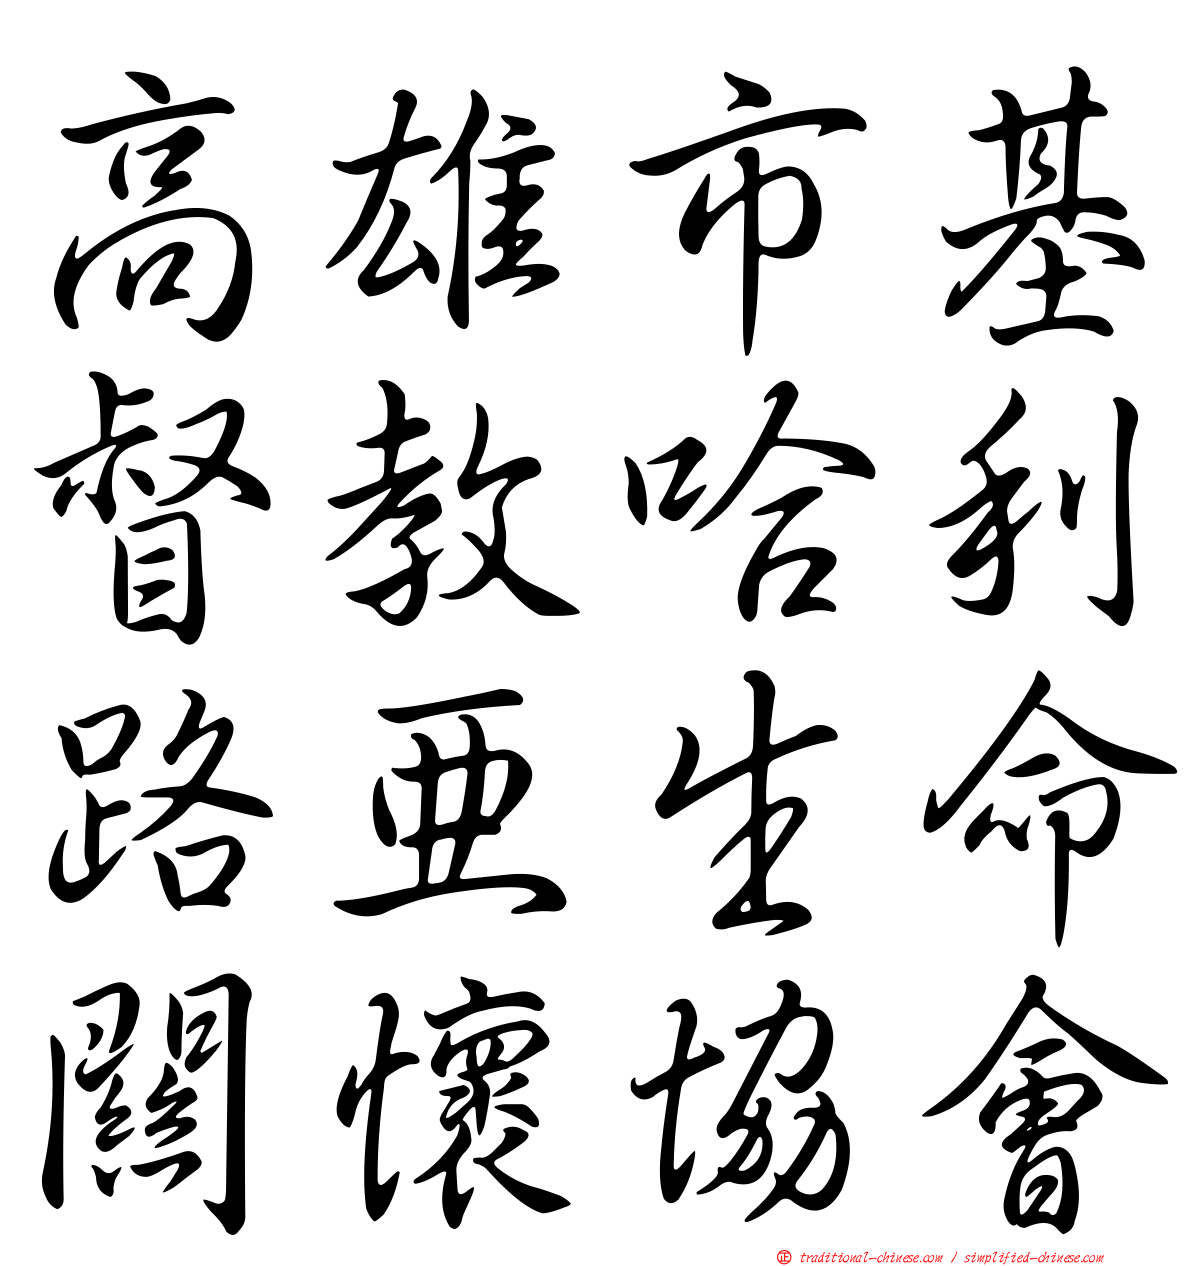 高雄市基
督教哈利
路亞生命
關懷協會
正 traditional-chinese.com / simplified-chinese.com